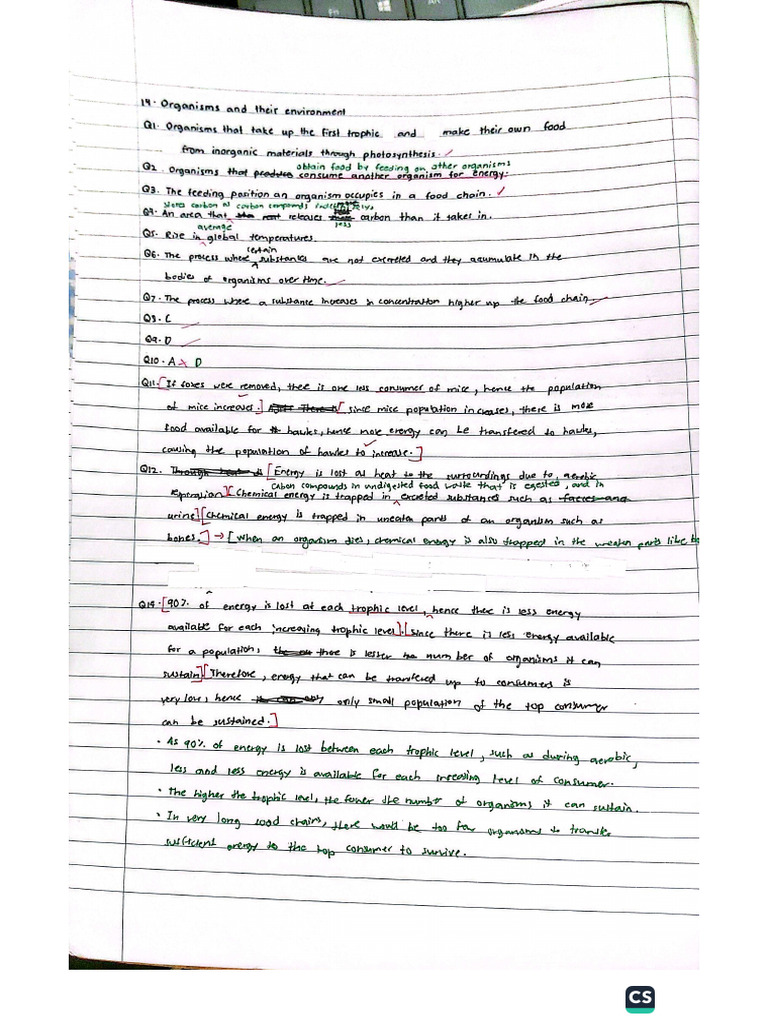 19. Organisms and their environment
Q1. Organisms that take up the first trophic and make their own food
from inorganic materials through photosynthesis.
obtain food by feeding on other organisms
Q2. Organisms that produce consume another organism for energy.
Q3. The feeding position an organism occupies in a food chain.
stores carbon as carbon compounds indefinitely,
Q4. An area that releases carbon than it takes in.
less
average
Q5. Rise in global temperatures.
certain
Q6. The process where substances are not excreted and they acumulate in the
bodies of organisms over time.
Q7. The process where a substance increases in concentration higher up the food chain
Q8. C
Q9. D
Q10. A D
Q11. [If foxes were removed, there is one less consumer of mice, hence the population
of mice increases.] [since mice population increases, there is more
food available for hawks, hence more energy can be transfered to hawks,
causing the population of hawks to increase.]
Q12. [Energy is lost as heat to the surroundings due to aerobic
Carbon compounds in undigested food waste that is egested, and in
respiration] [Chemical energy is trapped in excreted substances such as faeces and
urine] [Chemical energy is trapped in uneaten parts of an organism such as
bones.] → [When an organism dies, chemical energy is also trapped in the uneaten parts like
Q14. [90% of energy is lost at each trophic level, hence there is less energy
available for each increasing trophic level]. [Since there is less energy available
for a population, there is lesser number of organisms it can
sustain] [Therefore, energy that can be transfered up to consumers is
very low, hence only small population of the top consumer
can be sustained.]
• As 90% of energy is lost between each trophic level, such as during aerobic,
less and less energy is available for each increasing level of consumer.
• The higher the trophic level, the fewer the number of organisms it can sustain.
• In very long food chains, there would be too few organisms to transfer
sufficient energy to the top consumer to survive.
CS